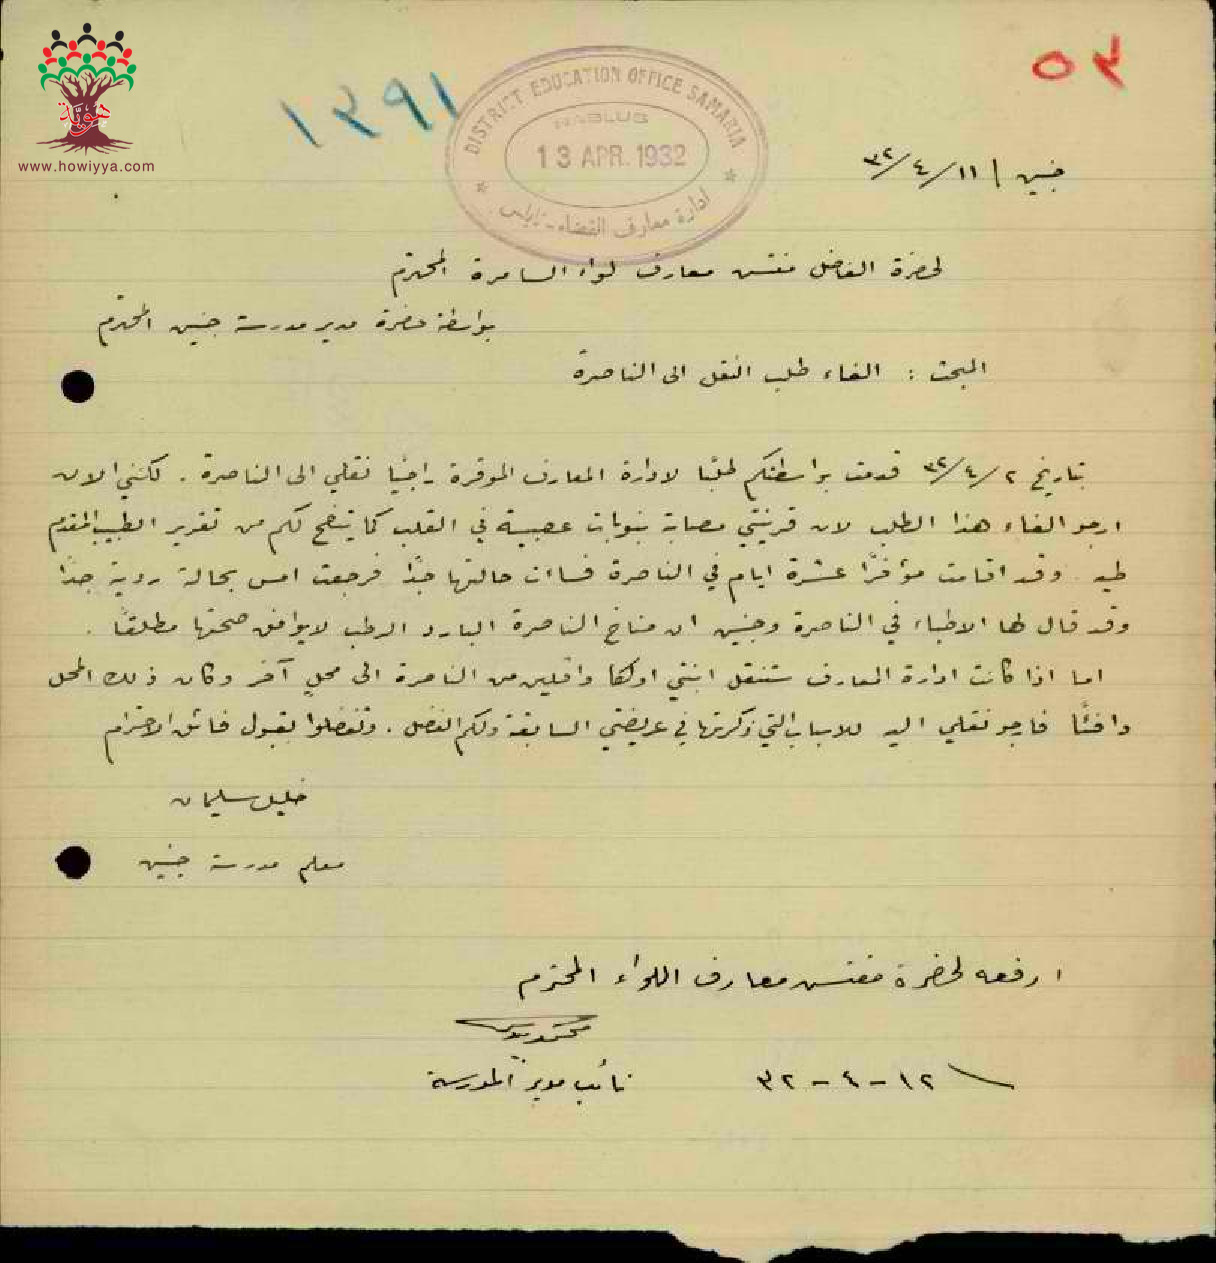 هويّة
www.howiyya.com
١٣٩١
٥٣
DISTRICT EDUCATION OFFICE SAMARIA
NABLUS
13 APR. 1932
ادارة معارف القضاء - نابلس
جنين / ١١ / ٤ / ٣٢
لحضرة الفاضل مفتش معارف لواء السامرة المحترم
بواسطة حضرة مدير مدرسة جنين المحترم
المبحث : الغاء طلب النقل الى الناصرة
بتاريخ ٢ / ٤ / ٣٢ قدمت بواسطتكم طلبًا لادارة المعارف الموقرة راجيًا نقلي الى الناصرة . لكنني الان
ارجو الغاء هذا الطلب لان قرينتي مصابة بنوبات عصبية في القلب كما يتضح لكم من تقرير الطبيب المقدم
طيه . وقد اقامت مؤخرًا عشرة ايام في الناصرة فساءت حالتها جدًا فرجعت امس بحالة ردية جدًا
وقد قال لها الاطباء في الناصرة وجنين ان مناخ الناصرة البارد الرطب لا يوافق صحتها مطلقًا .
اما اذا كانت ادارة المعارف ستنقل ابنتي اولگا واڤلين من الناصرة الى محلٍ آخر وكان ذلك المحل
دافئًا فارجو نقلي اليه للاسباب التي ذكرتها في عريضتي السابقة ولكم الفضل . وتفضلوا بقبول فائق الاحترام
خليل سليمان
معلم مدرسة جنين
ارفعه لحضرة مفتش معارف اللواء المحترم
١٢ - ٤ - ٣٢
نائب مدير المدرسة